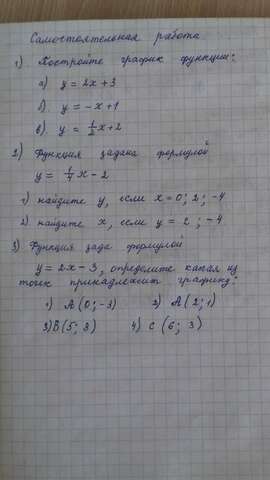 Самостоятельная работа
1) Постройте график функции:
а) y = 2x + 3
б) y = -x + 1
в) y = 1/2 x + 2
2) Функция задана формулой
y = 1/4 x - 2
1) найдите y, если x = 0; 2; -4
2) найдите x, если y = 2; -4
3) Функция зада формулой
y = 2x - 3, определите какая из
точек принадлежит графику:
1) А (0; -3) 2) А (2; 1)
3) В (5; 3) 4) С (6; 3)